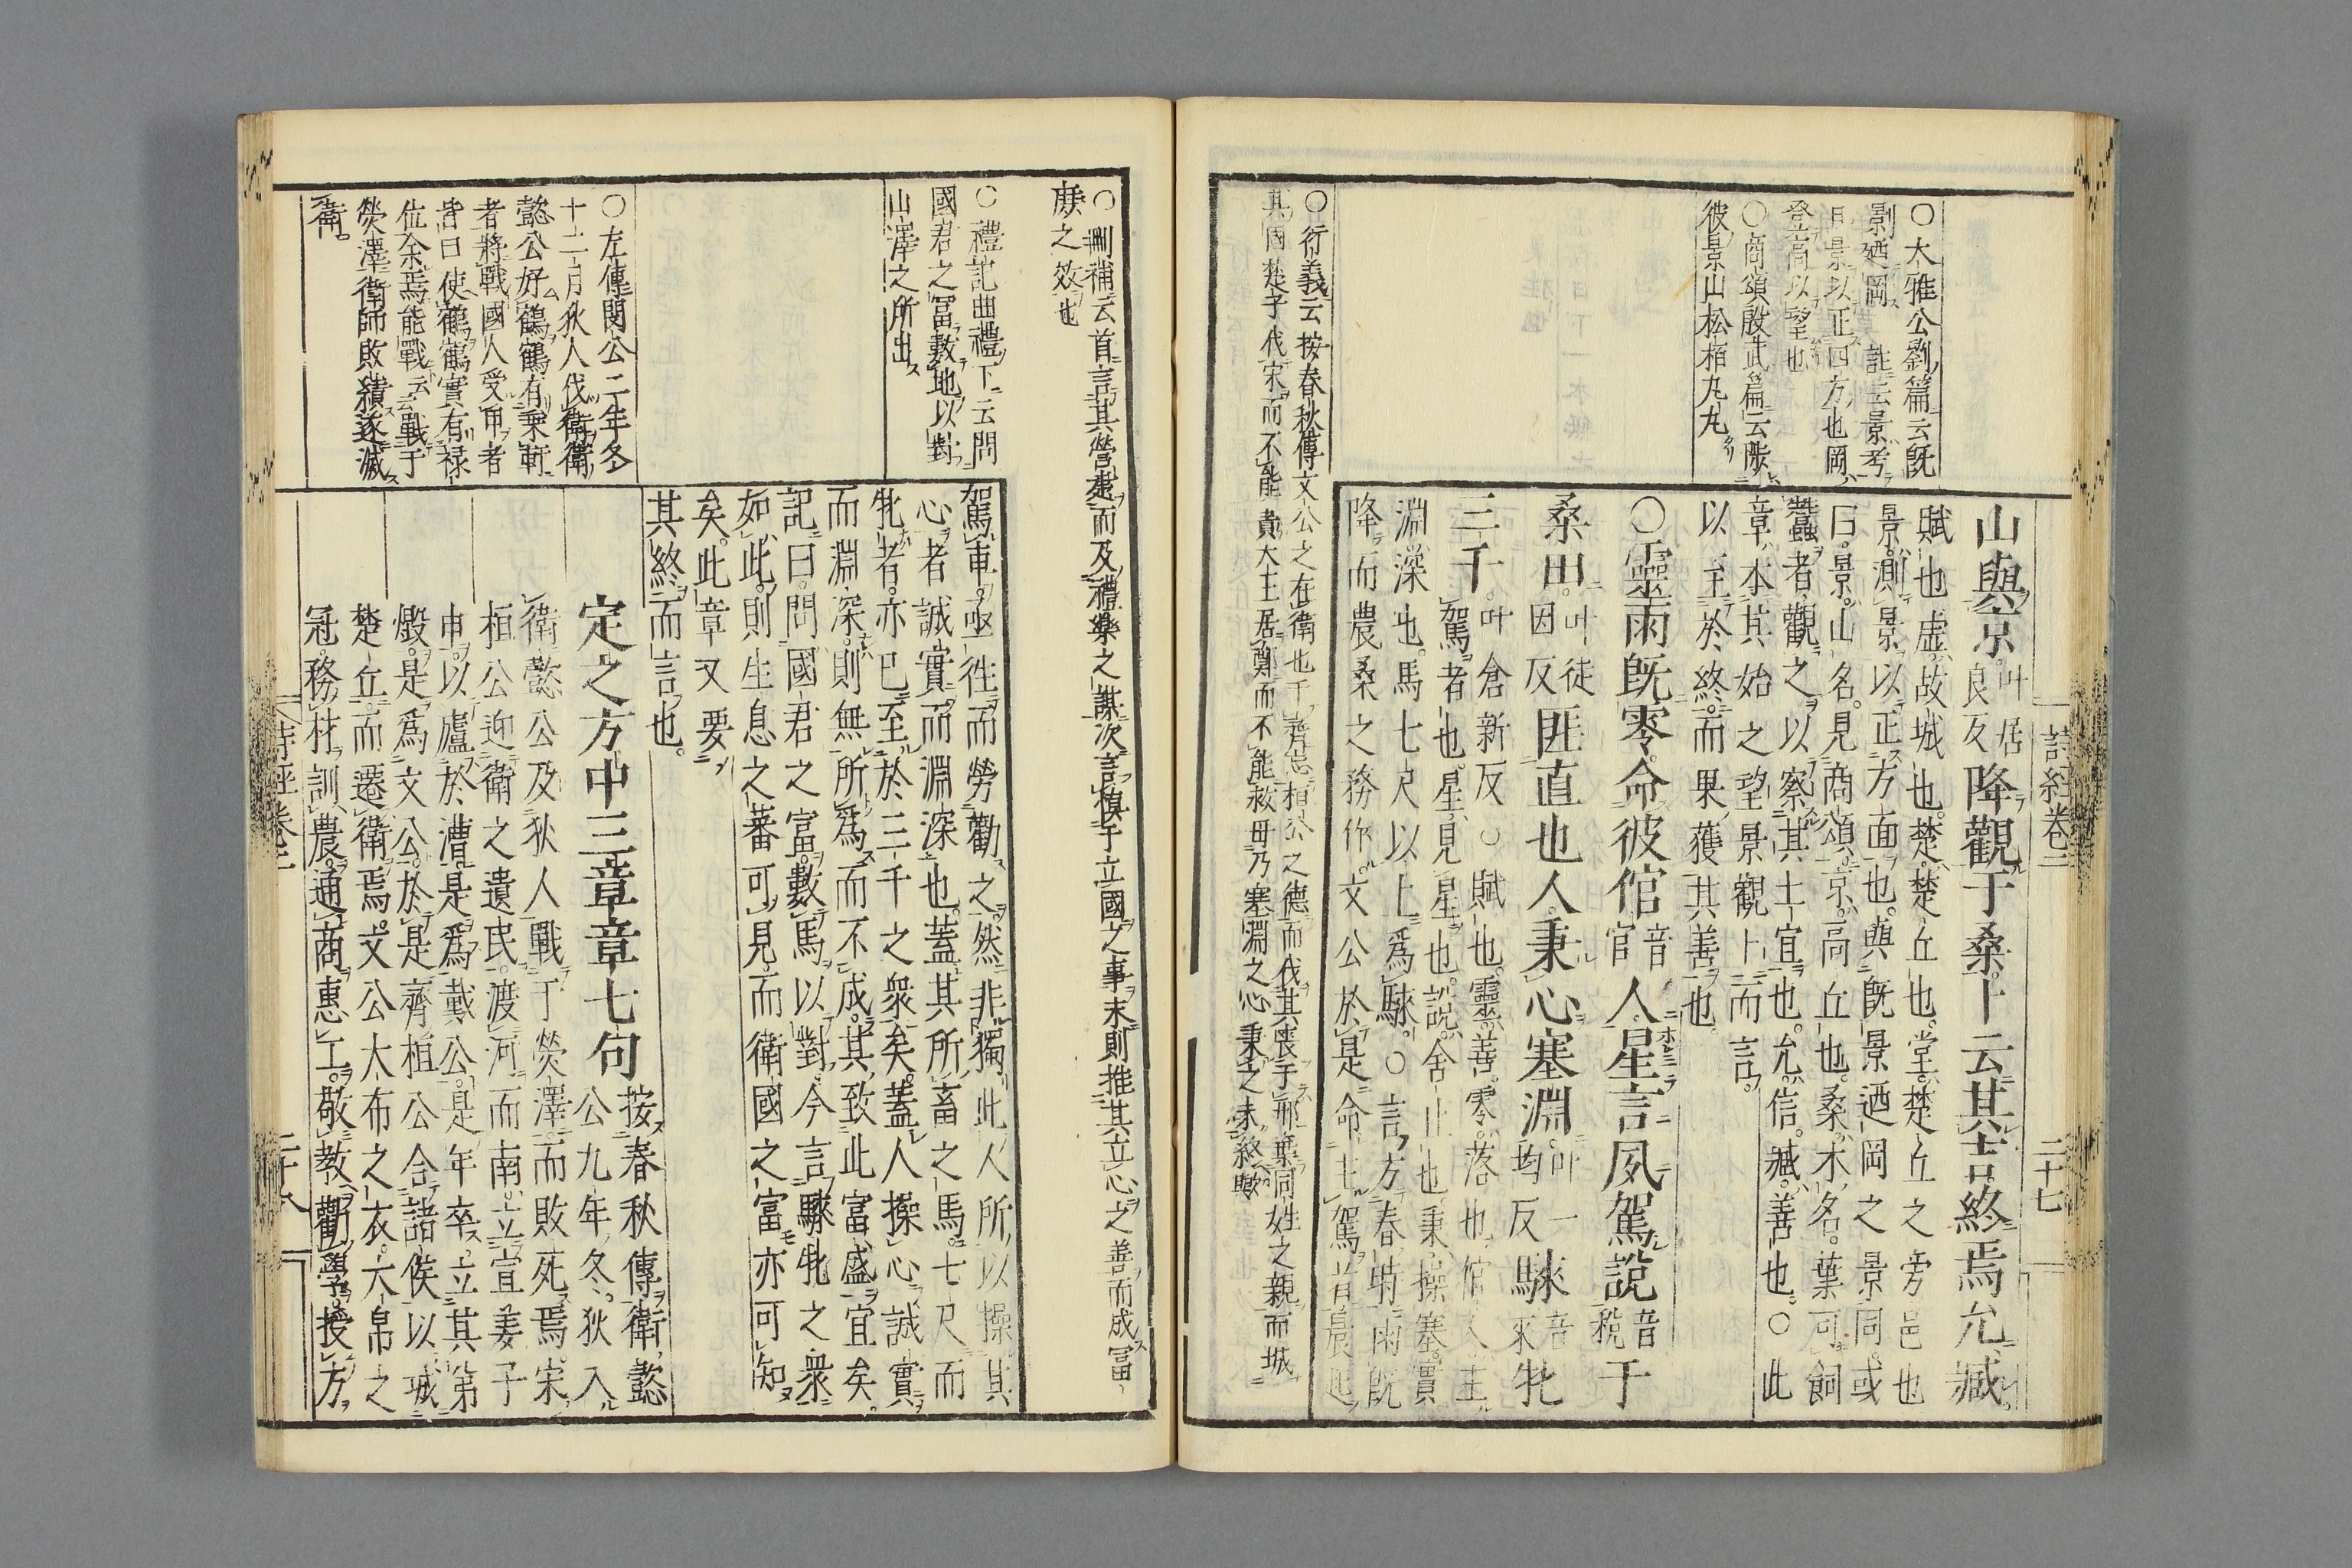 詩經卷二
二十七
○大雅公劉篇云既
景廼岡 註云景考
日景以正四方也岡
登高以望也
○商頌殷武篇云陟
彼景山松栢丸丸
山與京叶居良反降觀于桑卜云其吉終焉允臧
賦也虛故城也楚楚丘也堂楚丘之旁邑也
景測景以正方面也與既景迺岡之景同或
曰景山名見商頌京高丘也桑木名葉可飼
蠶者觀之以察其土宜也允信臧善也○此
章本其始之望景觀卜而言
以至於終而果獲其善也
○靈雨既零命彼倌音官人星言夙駕說音稅于
桑田叶徒因反匪直也人秉心塞淵叶一均反騋音來牝
三千叶倉新反○賦也靈善零落也倌人主
駕者也星見星也說舍止也秉操塞實
淵深也馬七尺以上爲騋○言方春時雨既
降而農桑之務作文公於是命主駕者晨起
○衍義云按春秋傳文公之在衛也
其國楚子代宋而不能責大王居鄭而不能救母乃塞淵之心秉之未終歟
○刪補云首言其營建而及禮樂之謀次言慎于立國之事末則推其立心之善而成冨
庶之效也
○禮記曲禮下云問
國君之冨數地以對
山澤之所出
駕車亟往而勞勸之然非獨此人所以操其
心者誠實而淵深也蓋其所畜之馬七尺而
牝者亦已至於三千之衆矣蓋人操心誠實
而淵深則無所爲而不成其致此富盛宜矣
記曰問國君之富數馬以對今言騋牝之衆
如此則生息之蕃可見而衛國之富亦可知
矣此章又要
其終而言也
○左傳閔公二年冬
十二月狄人伐衛衛
懿公好鶴鶴有乗軒
者將戰國人受甲者
皆曰使鶴鶴實有禄
位余焉能戰云云戰于
熒澤衛師敗績遂滅
衛
定之方中三章章七句按春秋傳衛懿公九年冬狄入
衛懿公及狄人戰于熒澤而敗死焉宋
桓公迎衛之遺民渡河而南立宣姜子
申以廬於漕是爲戴公是年卒立其弟
燬是爲文公於是齊桓公合諸侯以城
楚丘而遷衛焉文公大布之衣大帛之
冠務材訓農通商惠工敬教勸學授方
詩經卷二
二十八